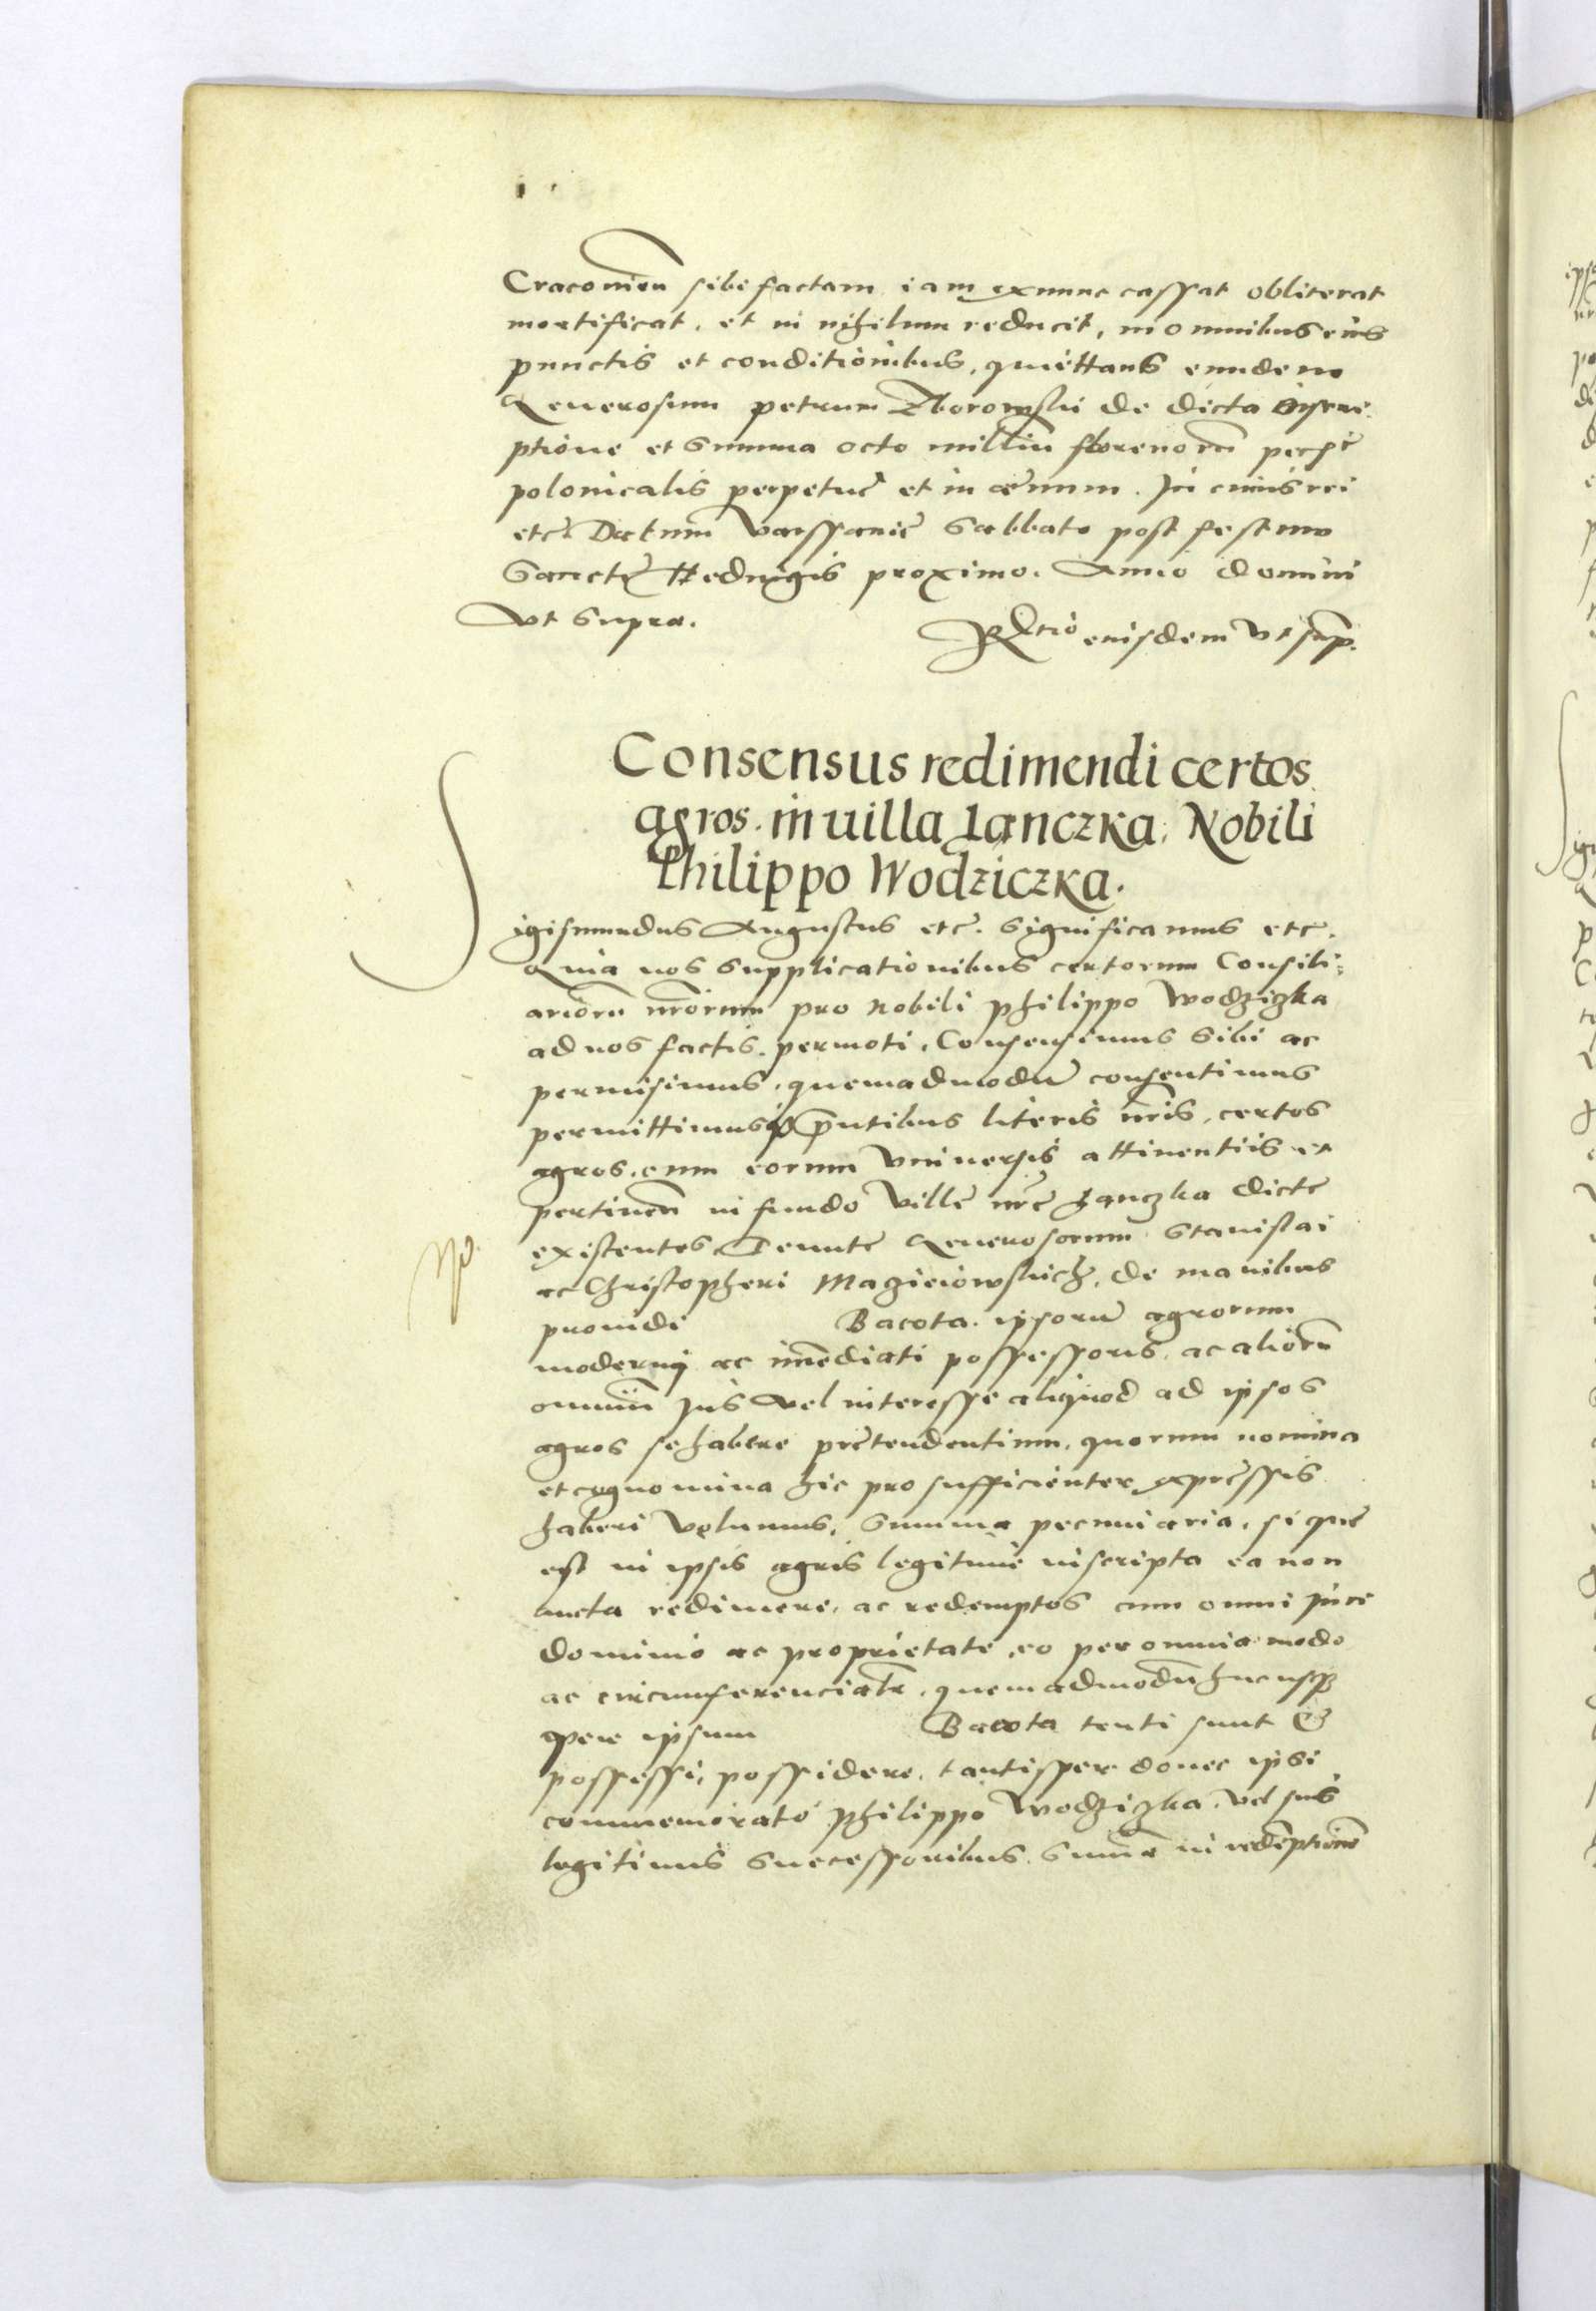 Cracovien̄ sibi factam iam exnunc cassat obliterat
mortificat, et in nihilum reducit, in omnibus eius
punctis et conditionibus, quiettans eundem
Generosum petrum Zborowski de dicta inscri
ptione et summa octo milliu florenorū pecūe
polonicalis perpetue et in aevum. In cuius rei
etc̄ Datum Varssavie Sabbato post festum
Sancte Hedvigis proximo. Anno domini
vt supra.
Rltio eiusdem vt sup̄.
Consensus redimendi certos
agros. in uilla Ianczka. Nobili
Philippo Wodziczka.
Sigismundus Augustus etc. significamus etc.
Quia nos supplicationibus certorum Consili:
ariorū nr̄orum pro Nobili Philippo Wodziczka
ad nos factis. permoti. Consensimus sibi ac
permisimus. quemadmodū consentimus
permittimusq̄ pn̄tibus literis nr̄is. certos
agros. cum eorum vniversis attinentiis et
pertinen̄ in fundo Ville nr̄e Janczka dicte
existentes Tenute Generosorum Stanislai
ac Christopheri Magieiowskich. de manibus
providi Bacota. ipsorū agrorum
moderni ac im̄ediati possessoris. ac aliorū
omniū Jus vel interesse aliquod ad ipsos
agros se habere pretendentium. quorum nomina
et cognomina hic pro sufficienter expressis
haberi volumus, summa pecuniaria, si que
est in ipsis agris legitime inscripta ea non
aucta redimere, ac redemptos cum omni Jure
dominio ac proprietate, eo per omnia modo
ac circumferenciatr̄. quemadmodū hucusq̄
per ipsum Bacota tenti sunt &
possessi, possidere. tantisper donec ipsi
commemorato Philippo Wodziczka. vel suis
legitimis successoribus. sum̄a in redēptione